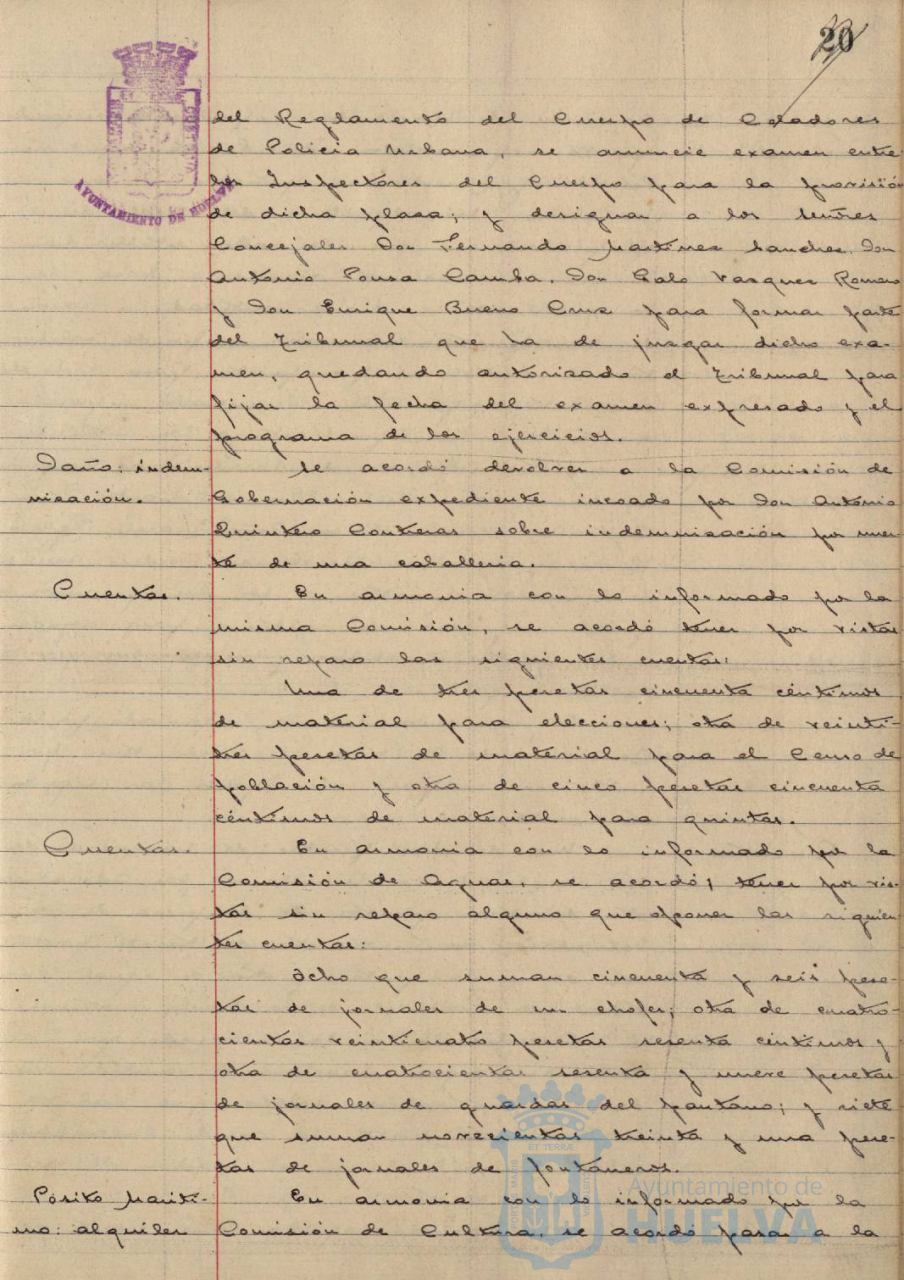 20
AYUNTAMIENTO DE HUELVA
del Reglamento del Cuerpo de Celadores
de Policia Urbana, se anuncie examen entre
los Inspectores del Cuerpo para la provisión
de dicha plaza; y designar a los señores
Concejales Don Fernando Martinez Sanchez, Don
Antonio Pousa Camba, Don Galo Vazquez Romero
y Don Enrique Bueno Cruz para formar parte
del Tribunal que ha de juzgar dicho exa-
men, quedando autorizado el Tribunal para
fijar la fecha del examen expresado y el
programa de los ejercicios.
Daño: indem-
nización.
Se acordó devolver a la Comisión de
Gobernación expediente incoado por Don Antonio
Quintero Contreras sobre indemnización por muer-
te de una caballeria.
Cuentas.
En armonia con lo informado por la
misma Comisión, se acordó tener por vistas
sin reparo las siguientes cuentas:
Una de tres pesetas cincuenta céntimos
de material para elecciones; otra de veinti-
tres pesetas de material para el Censo de
población y otra de cinco pesetas cincuenta
céntimos de material para quintas.
Cuentas.
En armonia con lo informado por la
Comisión de Aguas, se acordó, tener por vis-
tas sin reparo alguno que oponer las siguien
tes cuentas:
Ocho que suman cincuenta y seis pese-
tas de jornales de un chofer; otra de cuatro-
cientas veinticuatro pesetas sesenta céntimos y
otra de cuatrocientas sesenta y nueve pesetas
de jornales de guardas del pantano; y siete
que suman novecientas treinta y una pese-
tas de jornales de fontaneros.
Pósito Maríti-
mo: alquiler
En armonia con lo informado por la
Comisión de Cultura, se acordó pasar a la
Ayuntamiento de
HUELVA